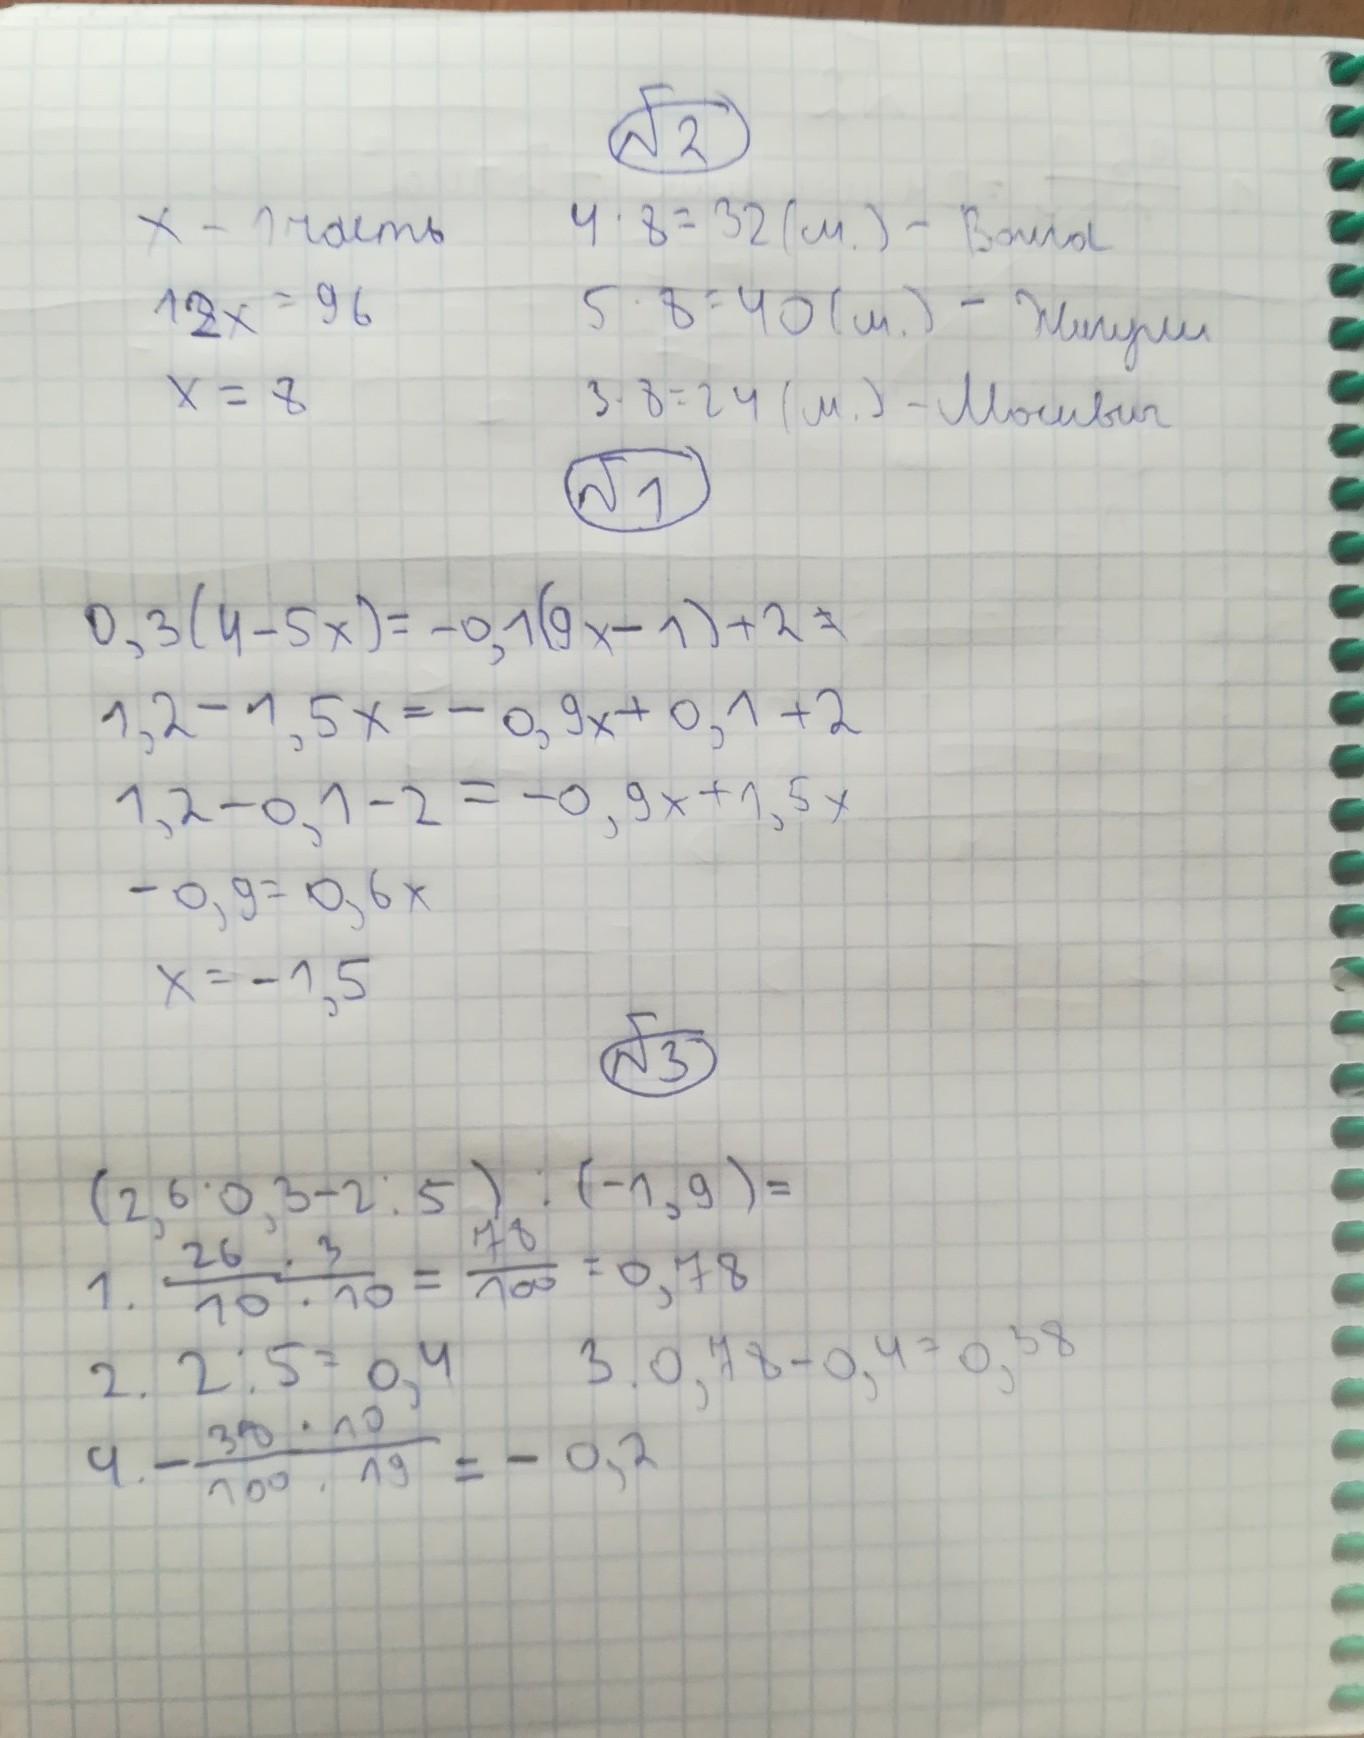 №2
x – 1 часть 4·8=32(м.) – Волга
12x=96 5·8=40(м.) – Жигули
x=8 3·8=24(м.) – Москвич
№1
0,3(4-5x)=-0,1(9x-1)+2=
1,2-1,5x=-0,9x+0,1+2
1,2-0,1-2=-0,9x+1,5x
-0,9=0,6x
x=-1,5
№3
(2,6·0,3-2:5):(-1,9)=
1. 26·3/10·10=78/100=0,78
2. 2:5=0,4 3. 0,78-0,4=0,38
4. -38·10/100·19=-0,2